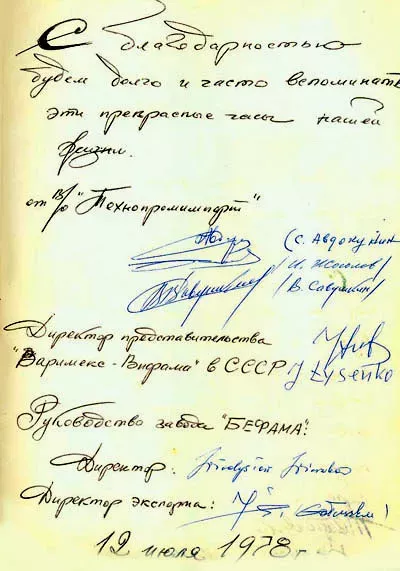 С благодарностью
будем долго и часто вспоминать
эти прекрасные часы нашей
жизни.
от В/О "Технопромимпорт"
(С. Авдокушин
(И. Жиглов)
(В. Саврикин)
Директор представительства
"Варимекс-Вифама" в СССР J Łysenko
Руководство завода "БЕФАМА":
Директор:
Директор экспорта:
12 июля 1978 г